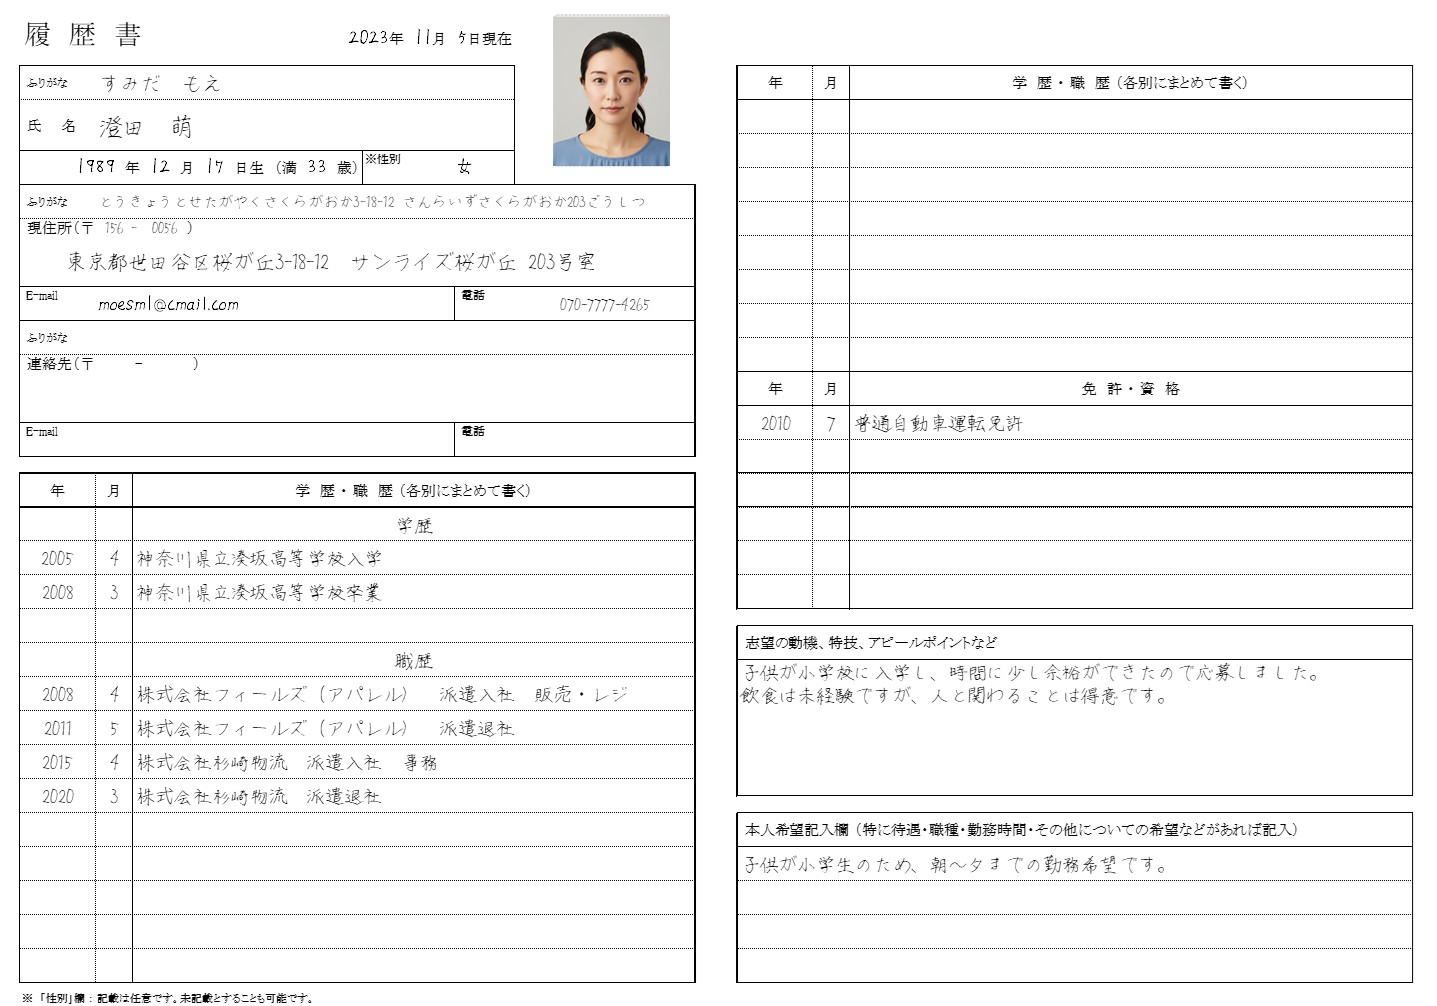 履 歴 書
2023年 11月 5日現在
ふりがな すみだ もえ
氏 名 澄田 萌
1989 年 12 月 17 日生 (満 33 歳) ※性別 女
ふりがな とうきょうとせたがやくさくらがおか3-18-12 さんらいずさくらがおか203ごうしつ
現住所(〒 156 - 0056 )
東京都世田谷区桜が丘3-18-12 サンライズ桜が丘 203号室
E-mail moesml@cmail.com 電話 070-7777-4265
ふりがな
連絡先(〒 - )
E-mail 電話
年 月 学 歴・職 歴 (各別にまとめて書く)
学歴
2005 4 神奈川県立湊坂高等学校入学
2008 3 神奈川県立湊坂高等学校卒業
職歴
2008 4 株式会社フィールズ(アパレル) 派遣入社 販売・レジ
2011 5 株式会社フィールズ(アパレル) 派遣退社
2015 4 株式会社杉崎物流 派遣入社 事務
2020 3 株式会社杉崎物流 派遣退社
※「性別」欄:記載は任意です。未記載とすることも可能です。
年 月 学 歴・職 歴 (各別にまとめて書く)
年 月 免 許・資 格
2010 7 普通自動車運転免許
志望の動機、特技、アピールポイントなど
子供が小学校に入学し、時間に少し余裕ができたので応募しました。
飲食は未経験ですが、人と関わることは得意です。
本人希望記入欄 (特に待遇・職種・勤務時間・その他についての希望などがあれば記入)
子供が小学生のため、朝～夕までの勤務希望です。